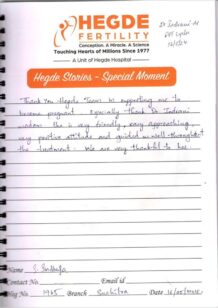 HEGDE
FERTILITY
Conception. A Miracle. A Science
Touching Hearts of Millions Since 1977
A Unit of Hegde Hospital
Dr Indrani
Hegde Stories - Special Moment
Thank You Hegde Team in supporting me to
become pregnant. Especially thank Dr Indrani
madam. She is very friendly, easy approaching,
very positive attitude and guided us well throughout
the treatment. We are very thankful to her.
Name
Contact No. Email id
Reg No. 1965 Branch Suchitra Date